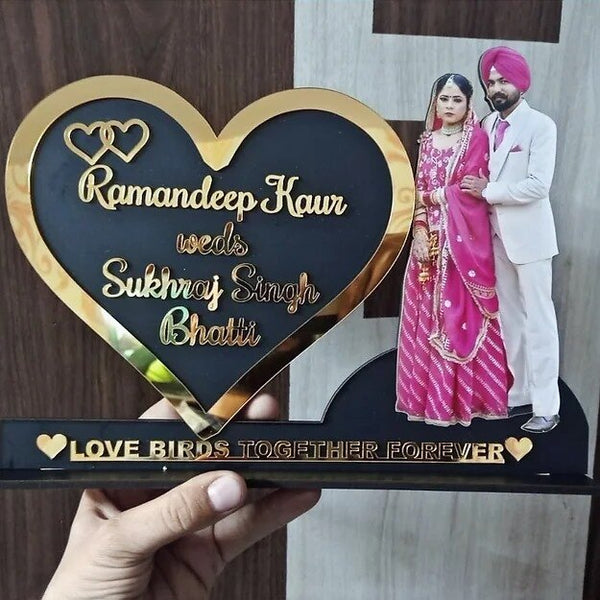 Ramandeep Kaur
weds
Sukhraj Singh
Bhatti
LOVE BIRDS TOGETHER FOREVER